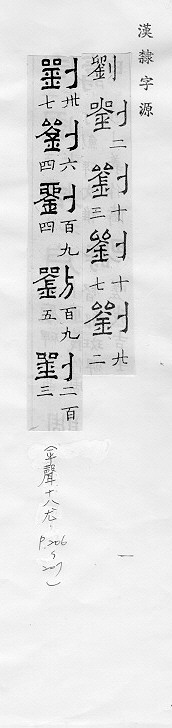 漢隸字源
劉 劉二 劉十三 劉十七 劉廿二
劉卅七 劉六四 劉百九四 劉百九五 劉二百三
(平聲.十八尤. P.206 5 207)